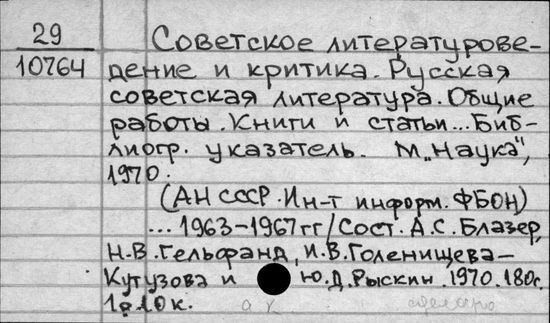 29
10764
Советское литературове-
дение и критика. Русская
советская литература. Общие
работы. Книги и статьи... Биб-
лиогр. указатель. М „Наука",
1970.
(АН СССР. Ин-т информ. ФБОН)
... 1963-1967 гг / Сост. А.С. Блазер,
Н.В. Гельфанд, И.В. Голенищева-
Кутузова и Ю.Д. Рыскин. 1970. 180с.
1р 10к.
сделано